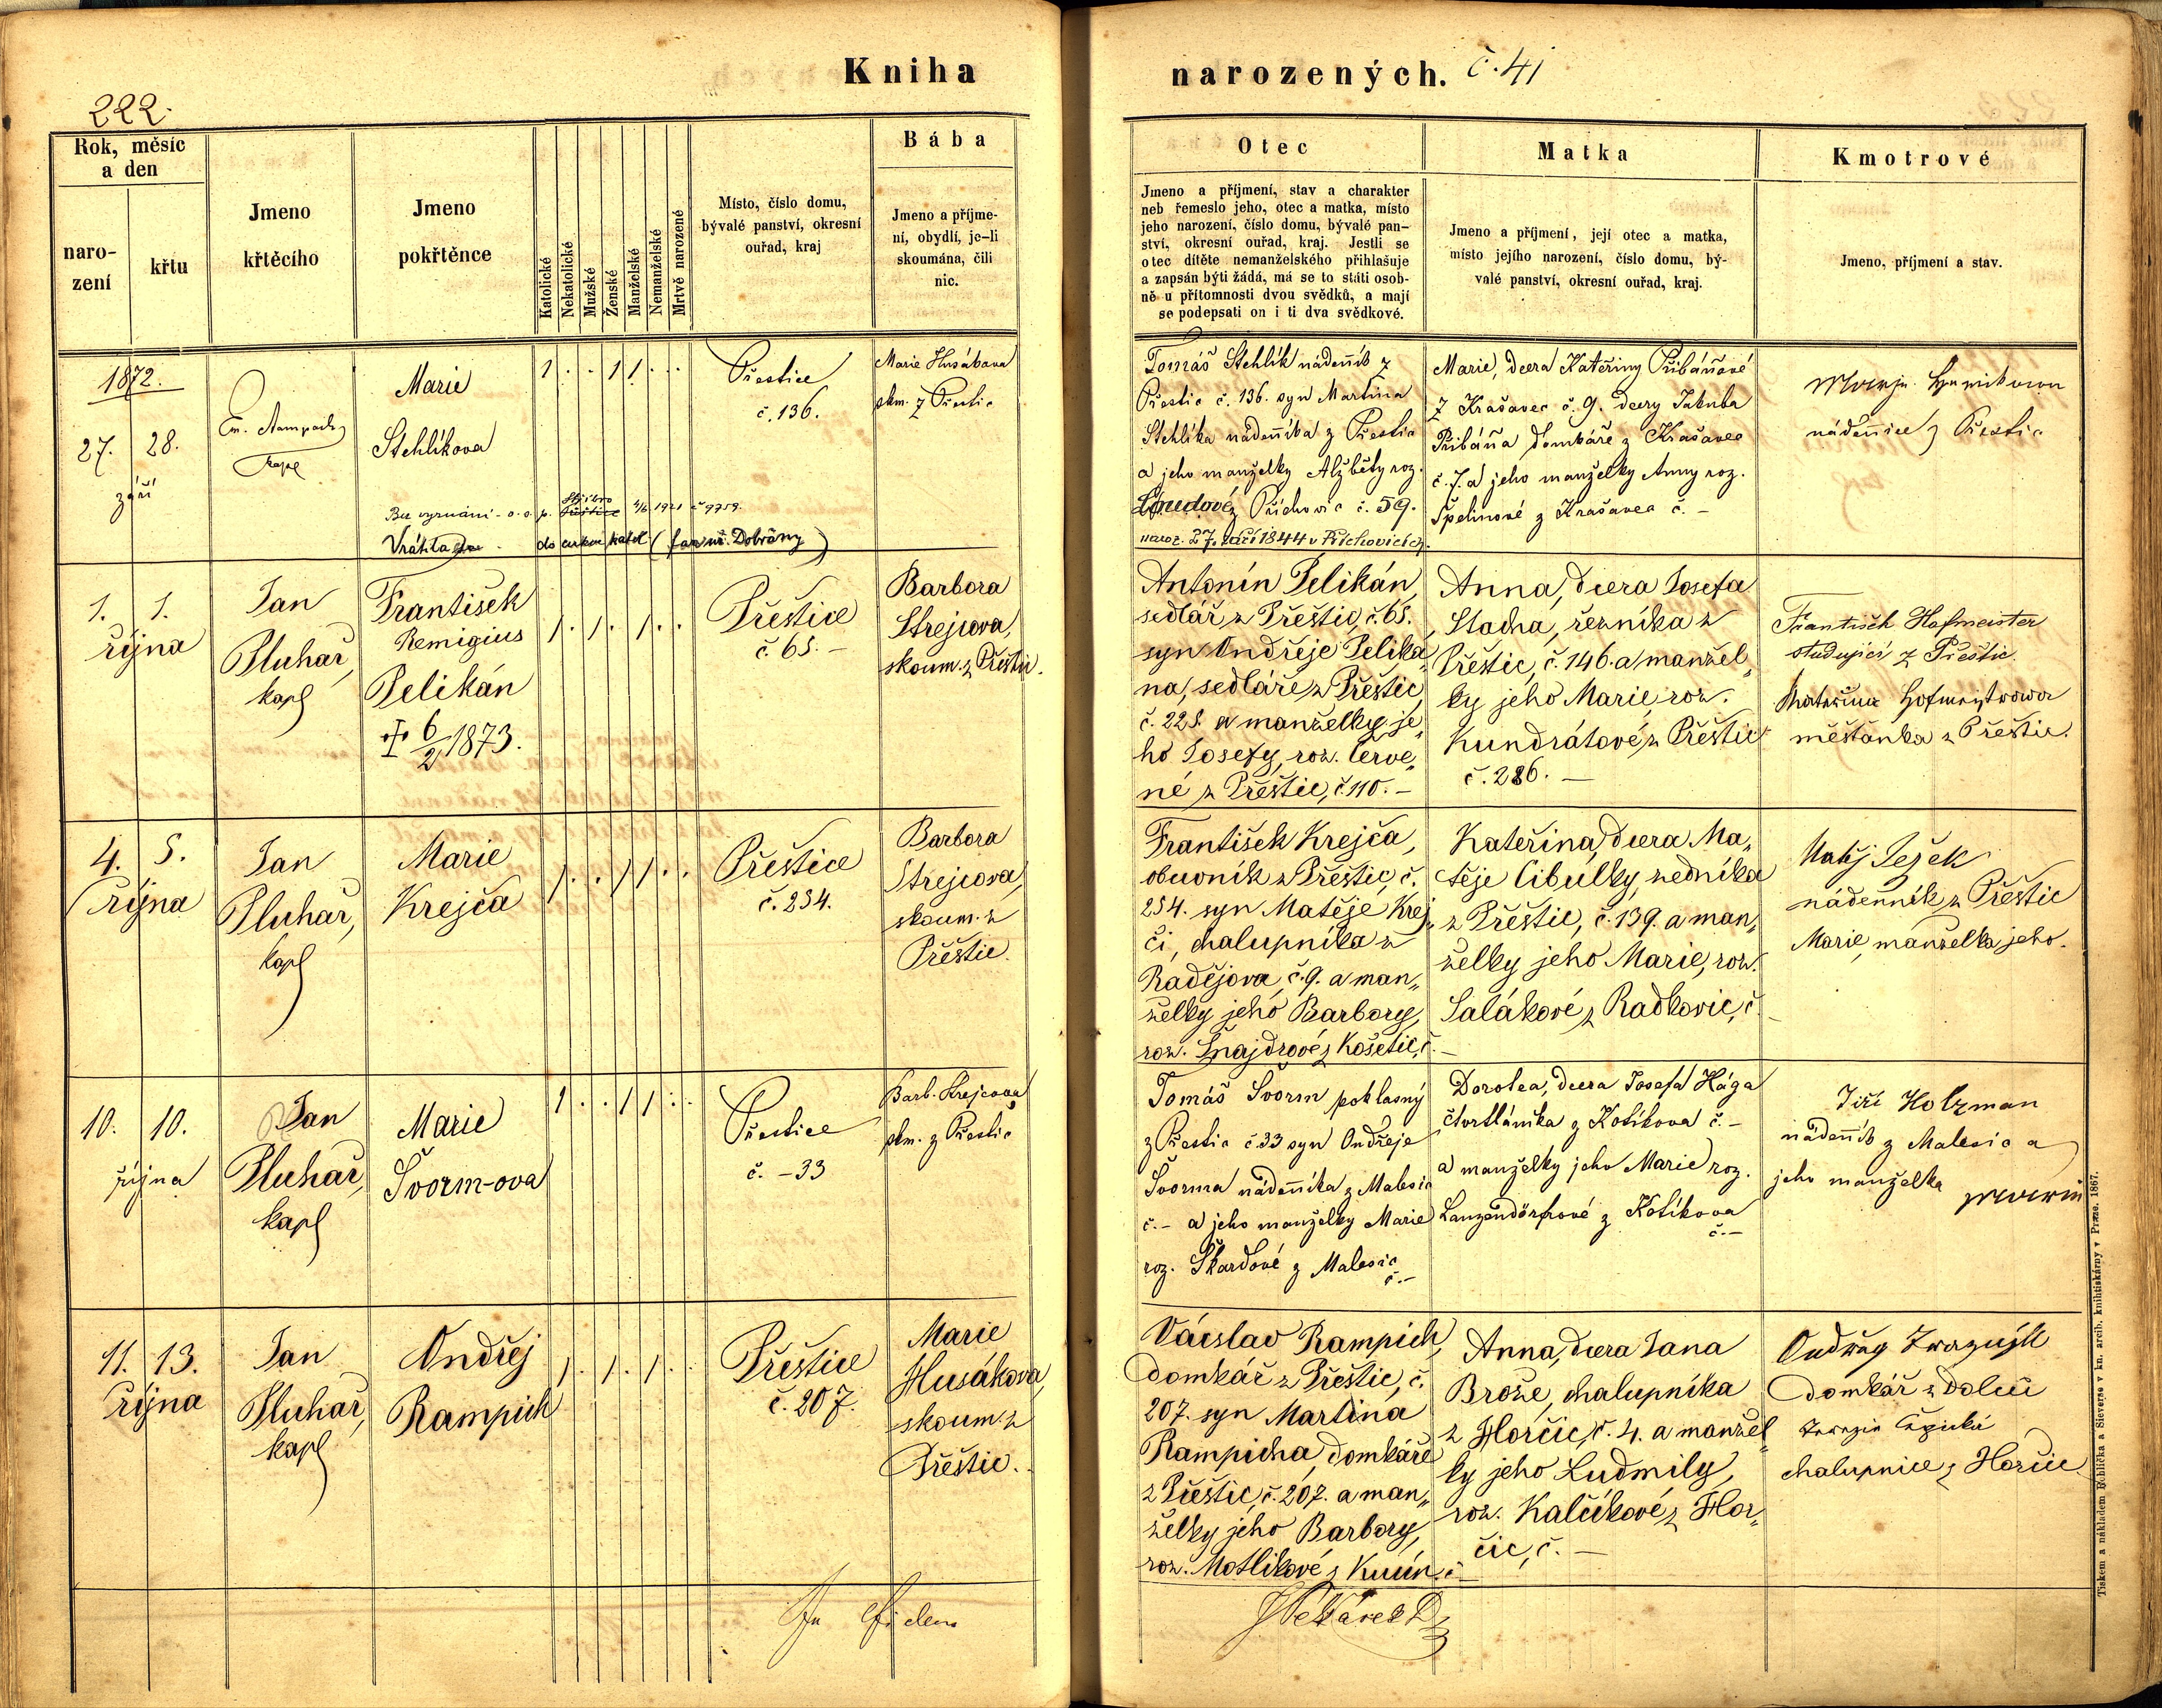 Kniha
narozených. č. 41
222.
Rok, měsíc
a den
naro-
zení
křtu
Jmeno
křtěcího
Jmeno
pokřtěnce
Katolické
Nekatolické
Mužské
Ženské
Manželské
Nemanželské
Mrtvě narozené
Místo, číslo domu,
bývalé panství, okresní
ouřad, kraj
Bába
Jmeno a příjme-
ní, obydlí, je-li
skoumána, čili
nic.
Otec
Jmeno a příjmení, stav a charakter
neb řemeslo jeho, otec a matka, místo
jeho narození, číslo domu, bývalé pan-
ství, okresní ouřad, kraj. Jestli se
otec dítěte nemanželského přihlašuje
a zapsán býti žádá, má se to státi osob-
ně u přítomnosti dvou svědků, a mají
se podepsati on i ti dva svědkové.
Matka
Jmeno a příjmení, její otec a matka,
místo jejího narození, číslo domu, bý-
valé panství, okresní ouřad, kraj.
Kmotrové
Jmeno, příjmení a stav.
1872.
27. 28.
září
Marie
Stehlíkova
Bez vyznání - o. s. p. Stříbro 1921 č 9759.
Vrátila do církve katol (far. úř. Dobřany)
1 . . 1 1 . .
Přestice
č. 136.
Marie Husákova
skm. z Přestic
Tomáš Stehlík nádenník z
Přestic č. 136. syn Martina
Stehlíka nádenníka z Přestic
a jeho manželky Alžběty roz.
Loudové z Příchovic č. 59.
naroz. 27. září 1844 v Příchovicích.
Marie, dcera Kateřiny Přibáňové
z Krašavec č. 9. dcery Jakuba
Přibáňa domkáře z Krašavec
č. 7. a jeho manželky Anny roz.
Špelinové z Krašavec č. -
nádennice z Přestic
1. 1.
října
Jan
Pluhař,
kapl
František
Remigius
Pelikán
† 6/2 1873.
1 . 1 . 1 . .
Přeštice
č. 65. -
Barbora
Strejcova,
skoum. z Přeštic.
Antonín Pelikán,
sedlář z Přeštic, č. 65.,
syn Ondřeje Peliká-
na, sedláře z Přeštic,
č. 225. a manželky je-
ho Josefy, roz. Červe-
né z Přeštic, č 110. -
Anna, dcera Josefa
Stacha, řezníka z
Přeštic, č. 146. a manžel-
ky jeho Marie, roz.
Kundrátové z Přeštic
č. 286. -
František Hofmeister
studující z Přeštic.
Kateřina Hofmeistrowa
měšťanka z Přeštic.
4. 5.
října
Jan
Pluhař,
kapl
Marie
Krejča
1 . . 1 1 . .
Přeštice
č. 254.
Barbora
Strejcova,
skoum. z
Přeštic.
František Krejča,
obuvník z Přeštic, č.
254. syn Matěje Krej-
či, chalupníka z
Radějova, č. 9. a man-
želky jeho Barbory,
roz. Šnajdrové z Košetic, č. -
Kateřina, dcera Ma-
těje Cibulky, zedníka
z Přeštic, č. 139. a man-
želky jeho Marie, roz.
Salákové z Radkovic, č. -
Matěj Ježek
nádenník z Přeštic
Marie, manželka jeho.
10. 10.
října
Jan
Pluhař,
kapl
Marie
Švorm-ova
1 . . 1 1 . .
Přestice
č. - 33
Barb. Strejcova
skm. z Přestic
Tomáš Svorm pohlasný
z Přestic č 33 syn Ondřeje
Švorma nádenníka z Malesic
č. - a jeho manželky Marie
roz. Škardové z Malesic
č. -
Dorotea, dcera Josefa Hága
čtvrtláníka z Kotíkova č. -
a manželky jeho Marie roz.
Lanzendörfrové z Kotíkova
č. -
Jiří Holzman
nádenník z Malesic a
jeho manželka
11. 13.
října
Jan
Pluhař,
kapl
Ondřej
Rampich
1 . 1 . 1 . .
Přeštice
č. 207.
Marie
Husákova,
skoum. z
Přeštic.
Václav Rampich,
domkář z Přeštic, č.
207. syn Martina
Rampicha, domkáře
z Přeštic, č. 207. a man-
želky jeho Barbory,
roz. Motlikové z č. -
Anna, dcera Jana
Brože, chalupníka
z Horčic, č. 4. a manžel-
ky jeho Ludmily,
roz. Kalčíkové z Hor-
čic, č. -
domkář z Dolců
chalupnice z Horčic
Tiskem a nákladem Rohlíčka a Sieverse v kn. arcib. knihtiskárny v Praze. 1867.